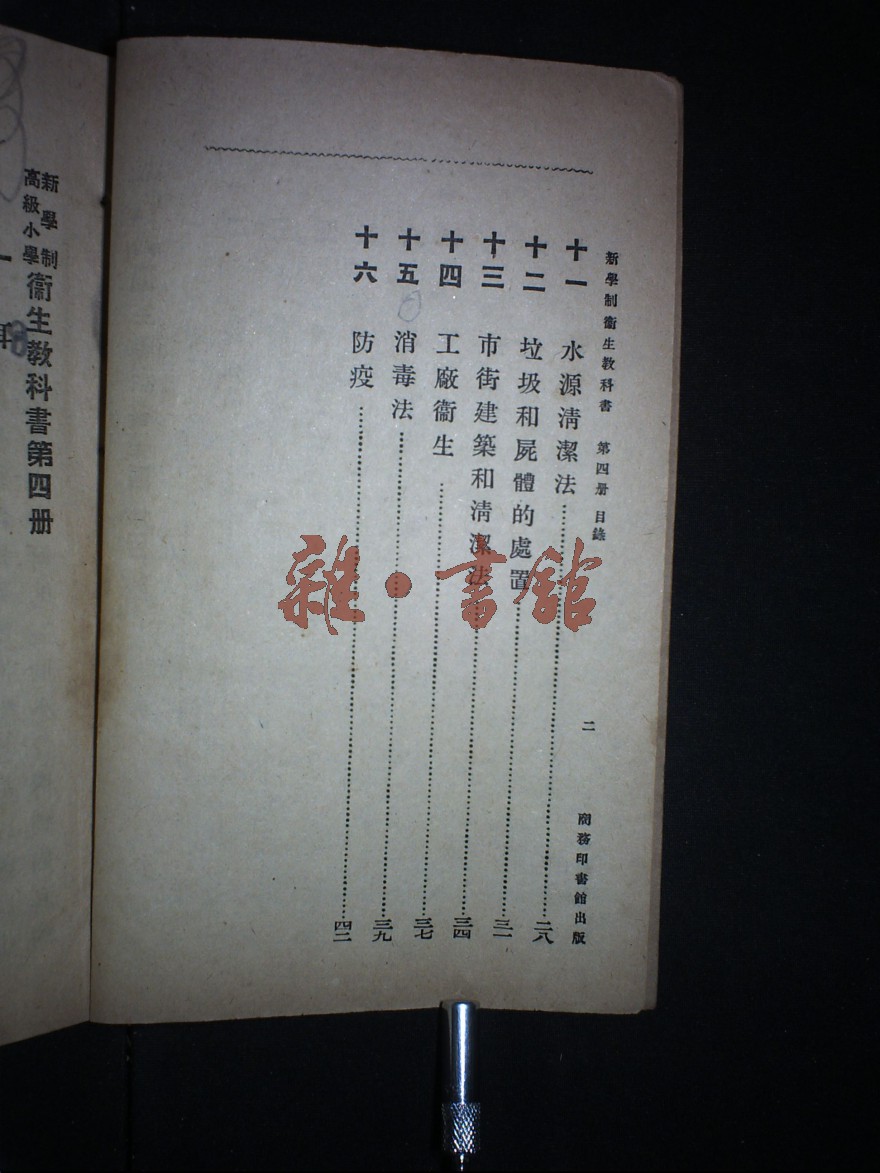 新學制衞生教科書 第四册 目錄 二 商務印書館出版
十一 水源清潔法 二八
十二 垃圾和屍體的處置 三一
十三 市街建築和清潔法 三四
十四 工廠衞生 三七
十五 消毒法 三九
十六 防疫 四二
新學制
高級小學
衞生教科書第四册
一
雜·書館